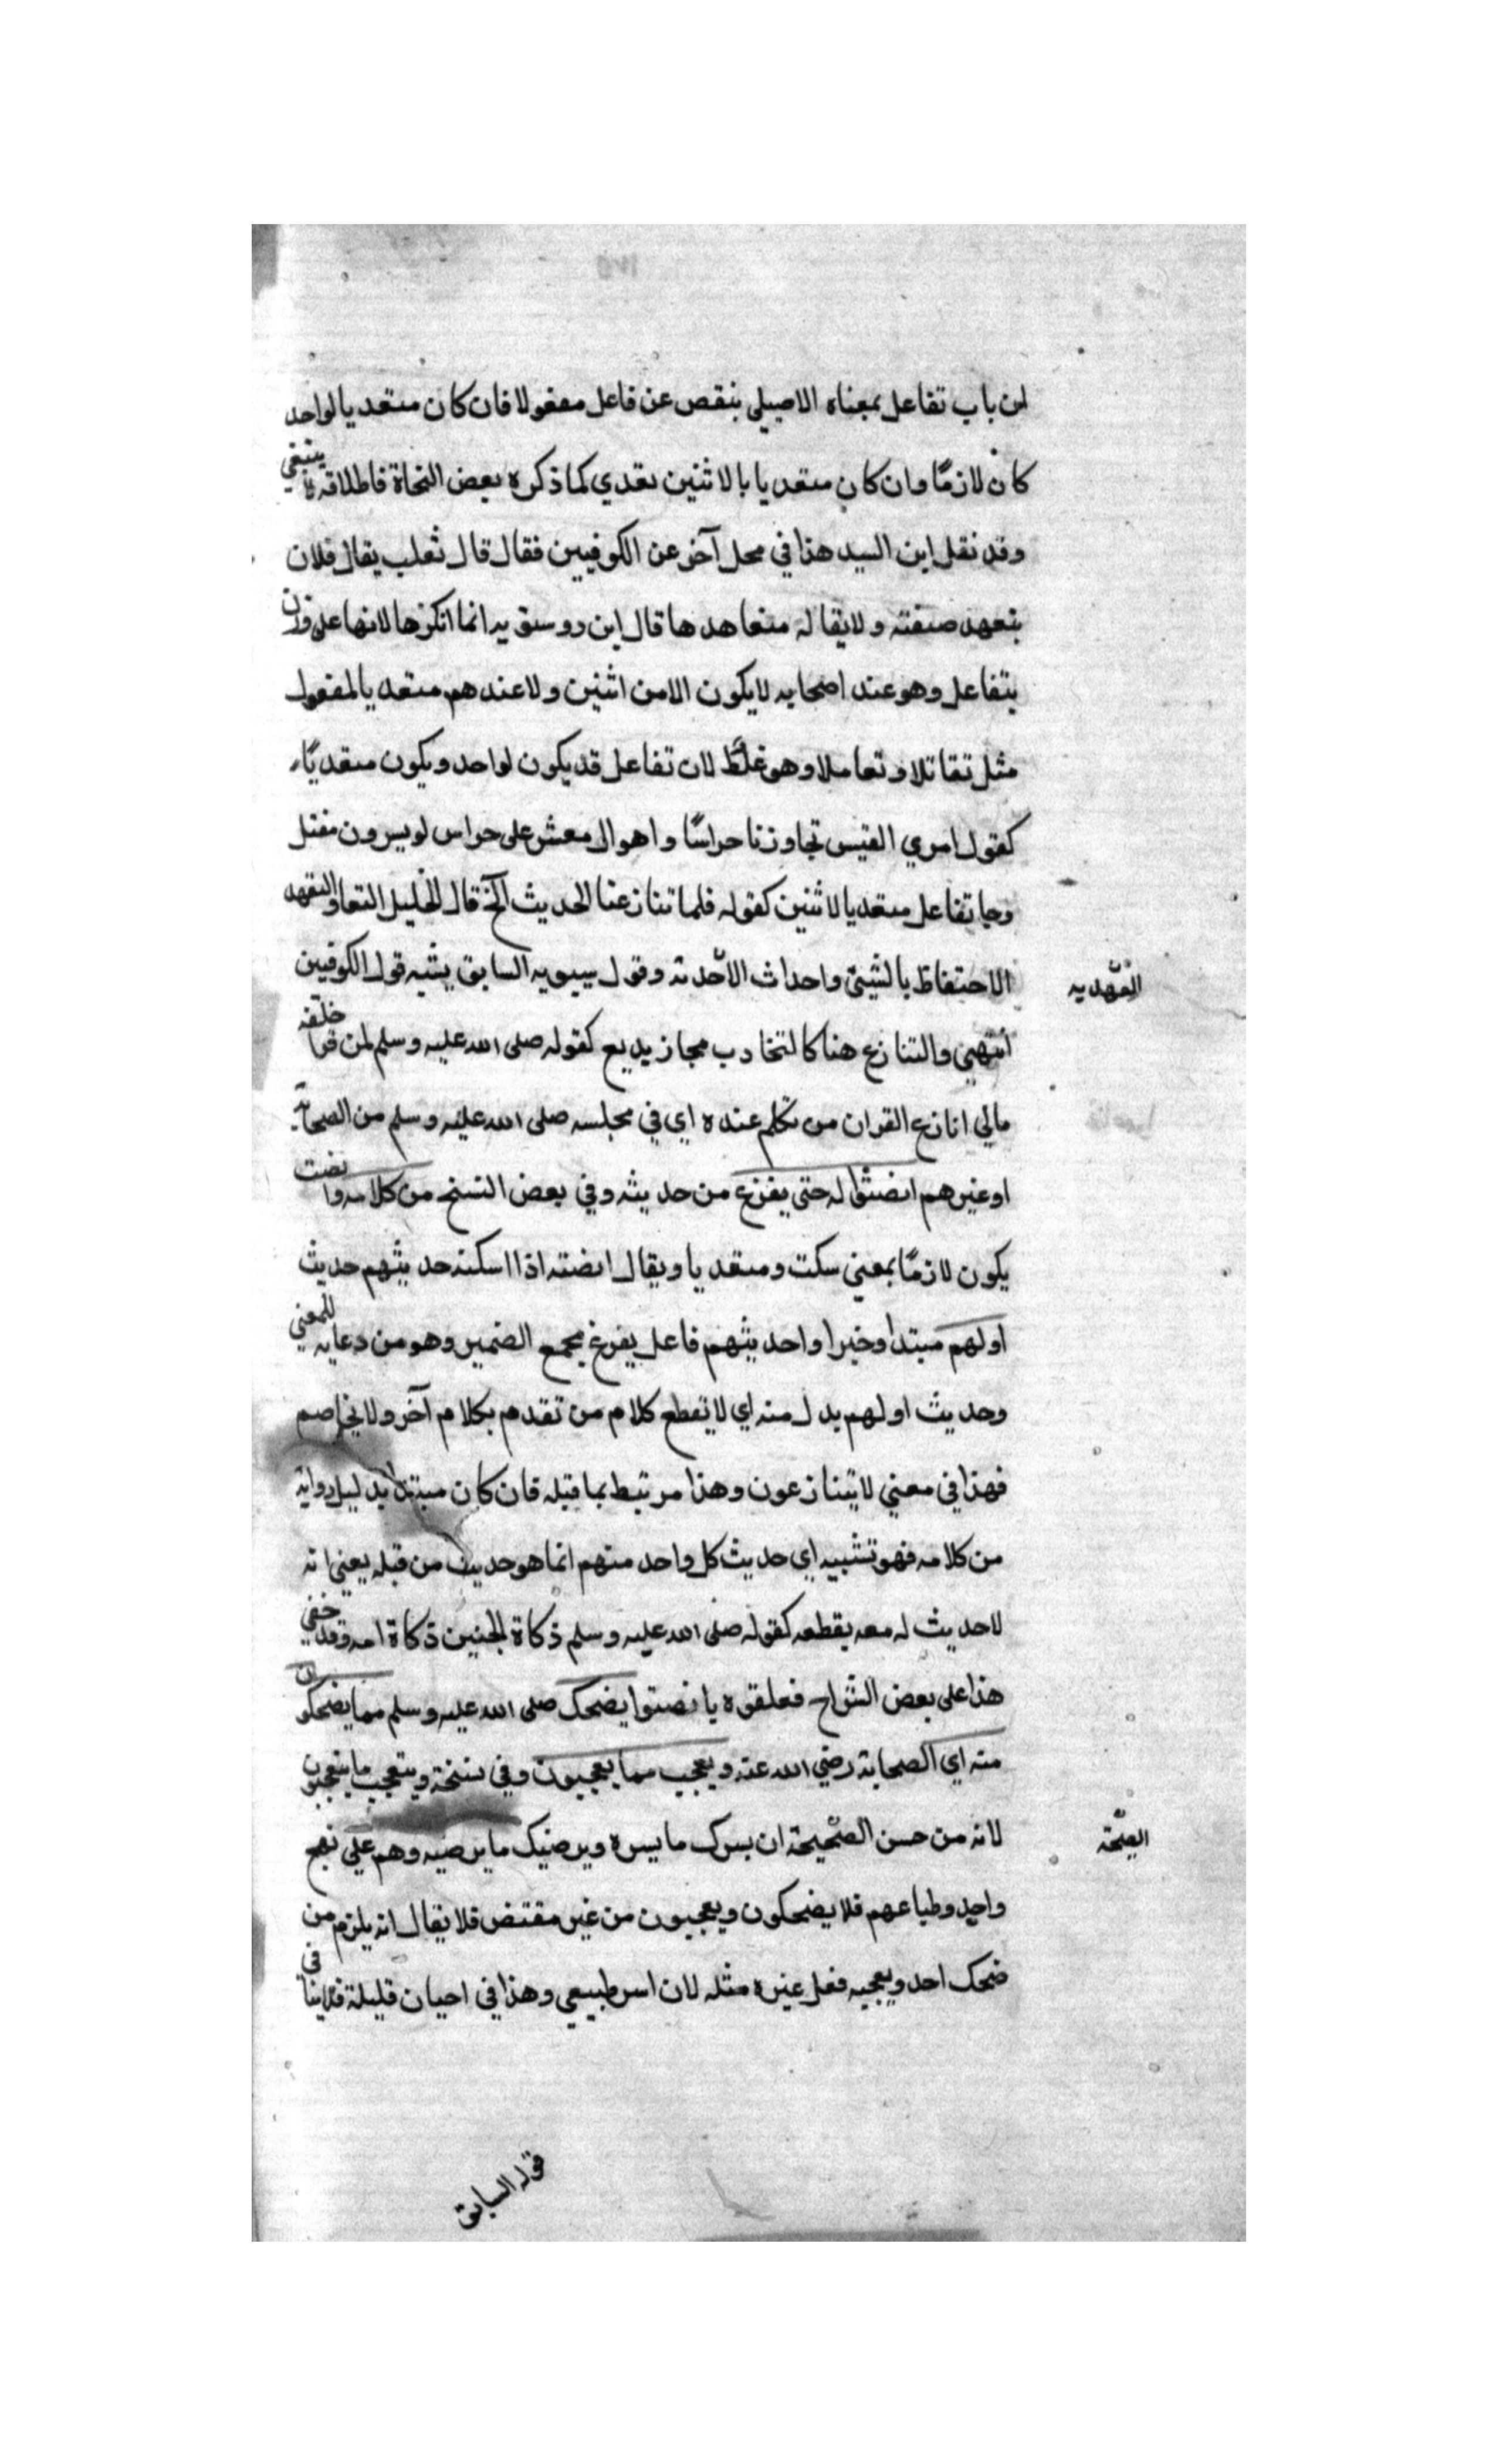 لان باب تفاعل بمعناه الاصيلي ينقص عن فاعل مفعولا فان كان متعديا لواحد
كان لازمًا وان كان متعديا بالاثنين تعدي كما ذكره بعض النحاة فاطلاقه لا ينبغي
وقد نقل ابن السيد هذا في محل آخر عن الكوفيين فقال قال ثعلب يقال فلان
يتعهد صنعته ولا يقال متعاهدها قال ابن دوستويه انما انكرها لانها على وزن
يتفاعل وهو عند اصحابه لا يكون الا من اثنين ولا عندهم متعديا لمفعول
مثل تقاتلا وتعاملا وهو غلط لان تفاعل قد يكون لواحد ويكون متعديًا
كقول امري القيس تجاوزنا حراسًا واهوال معشر على حراس لو يسرون مقتل
وجا تفاعل متعديا لاثنين كقوله فلما تنازعنا الحديث الخ قال الخليل التعاهد والتعهد
الاحتفاظ بالشيئ واحداث الاحدثه وقول سيبويه السابق يشبه قول الكوفيين
العهد به
انتهي والتنازع هنا كالتجادب مجاز بديع كقوله صلى الله عليه وسلم لمن قرا خلفه
مالي انازع القران من تكلم عنده اي في مجلسه صلى الله عليه وسلم من الصحابة
او غيرهم انصتوا له حتى يفرغ من حديثه وفي بعض النسخ من كلامه وانصت
يكون لازمًا بمعني سكت ومتعديا ويقال انصته اذا اسكته حديثهم حديث
اولهم مبتدا وخبرا واحديثهم فاعل يفرغ بجمع الضمير وهو من دعايه للمعني
وحديث اولهم بدل منه اي لا تقطع كلام من تقدم بكلام آخر ولا يخاصم
فهذا في معني لا يتنازعون وهذا مرتبط بما قبله فان كان مبتدا بدليل رواية
من كلامه فهو تشبيه اي حديث كل واحد منهم انما هو حديث من قبله يعني انه
لا حديث له معه يقطعه كقوله صلى الله عليه وسلم ذكاة الجنين ذكاة امه وقد خفي
هذا على بعض الشراح فعلقوه بانصتوا يضحك صلى الله عليه وسلم مما يضحكون
منه اي الصحابة رضي الله عنه ويعجب مما يعجبون وفي نسخة ويتعجب ما يتعجبون
لانه من حسن الصحيحة ان يسرك ما يسره ويرضيك ما يرضيه وهم علي نهج
الصحبة
واحد وطباعهم فلا يضحكون ويعجبون من غير مقتض فلا يقال انه يلزم من
ضحك احد ويعجبه فعل غيره مثله لان امر طبيعي وهذا في احيان قليلة فلا ينافي
قوله السابق